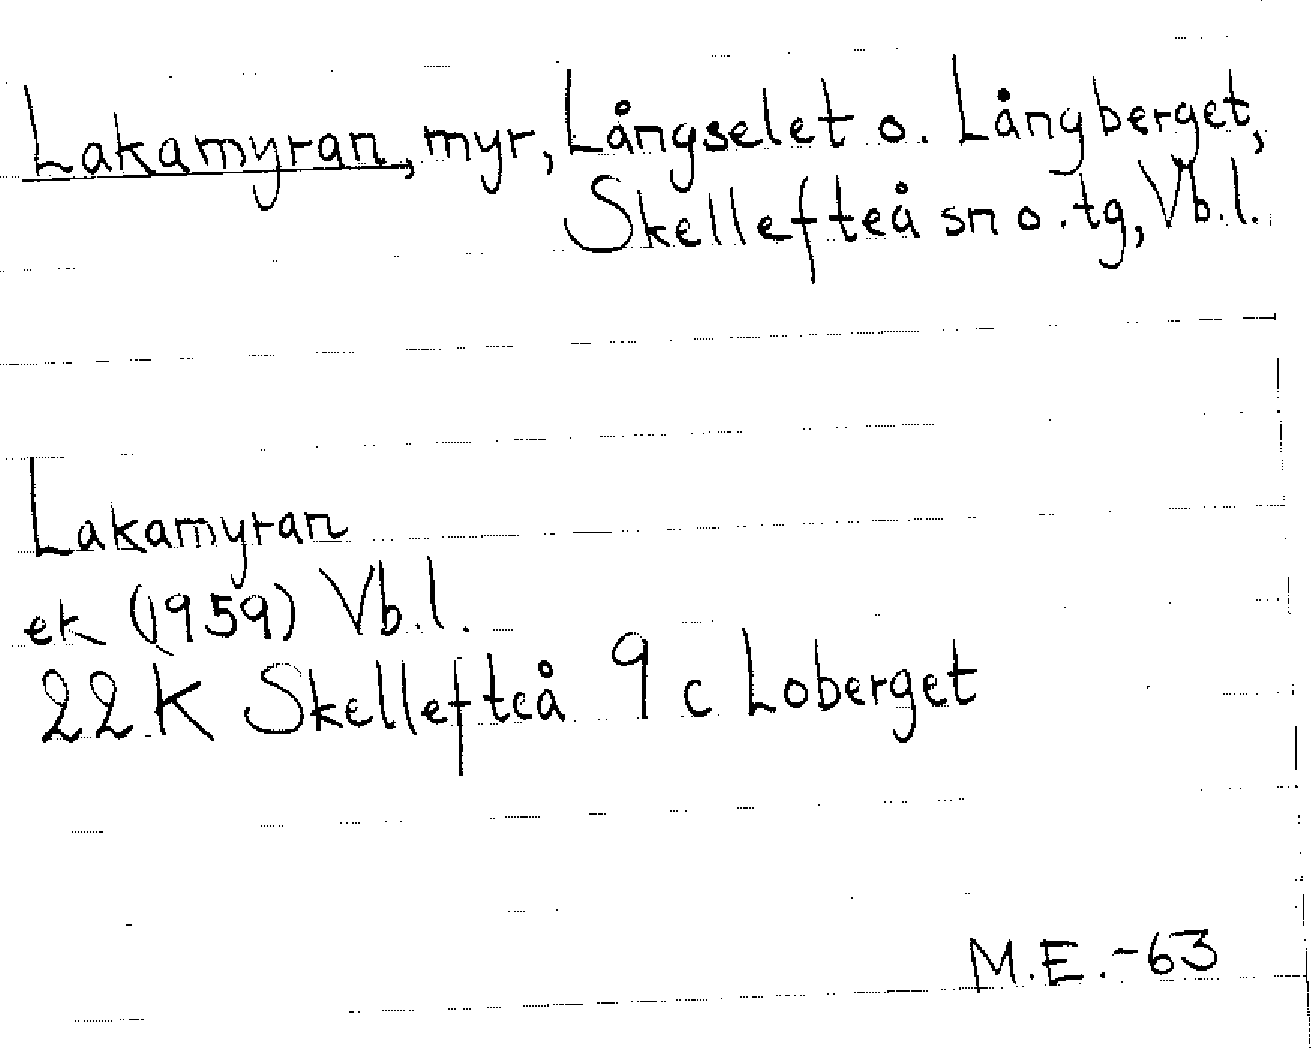 Lakamyran, myr, Långselet o. Långberget,
Skellefteå sn o. tg, Vb.l.
Lakamyran
ek (1959) Vb.l.
22 K Skellefteå 9 c Loberget
M.E.-63